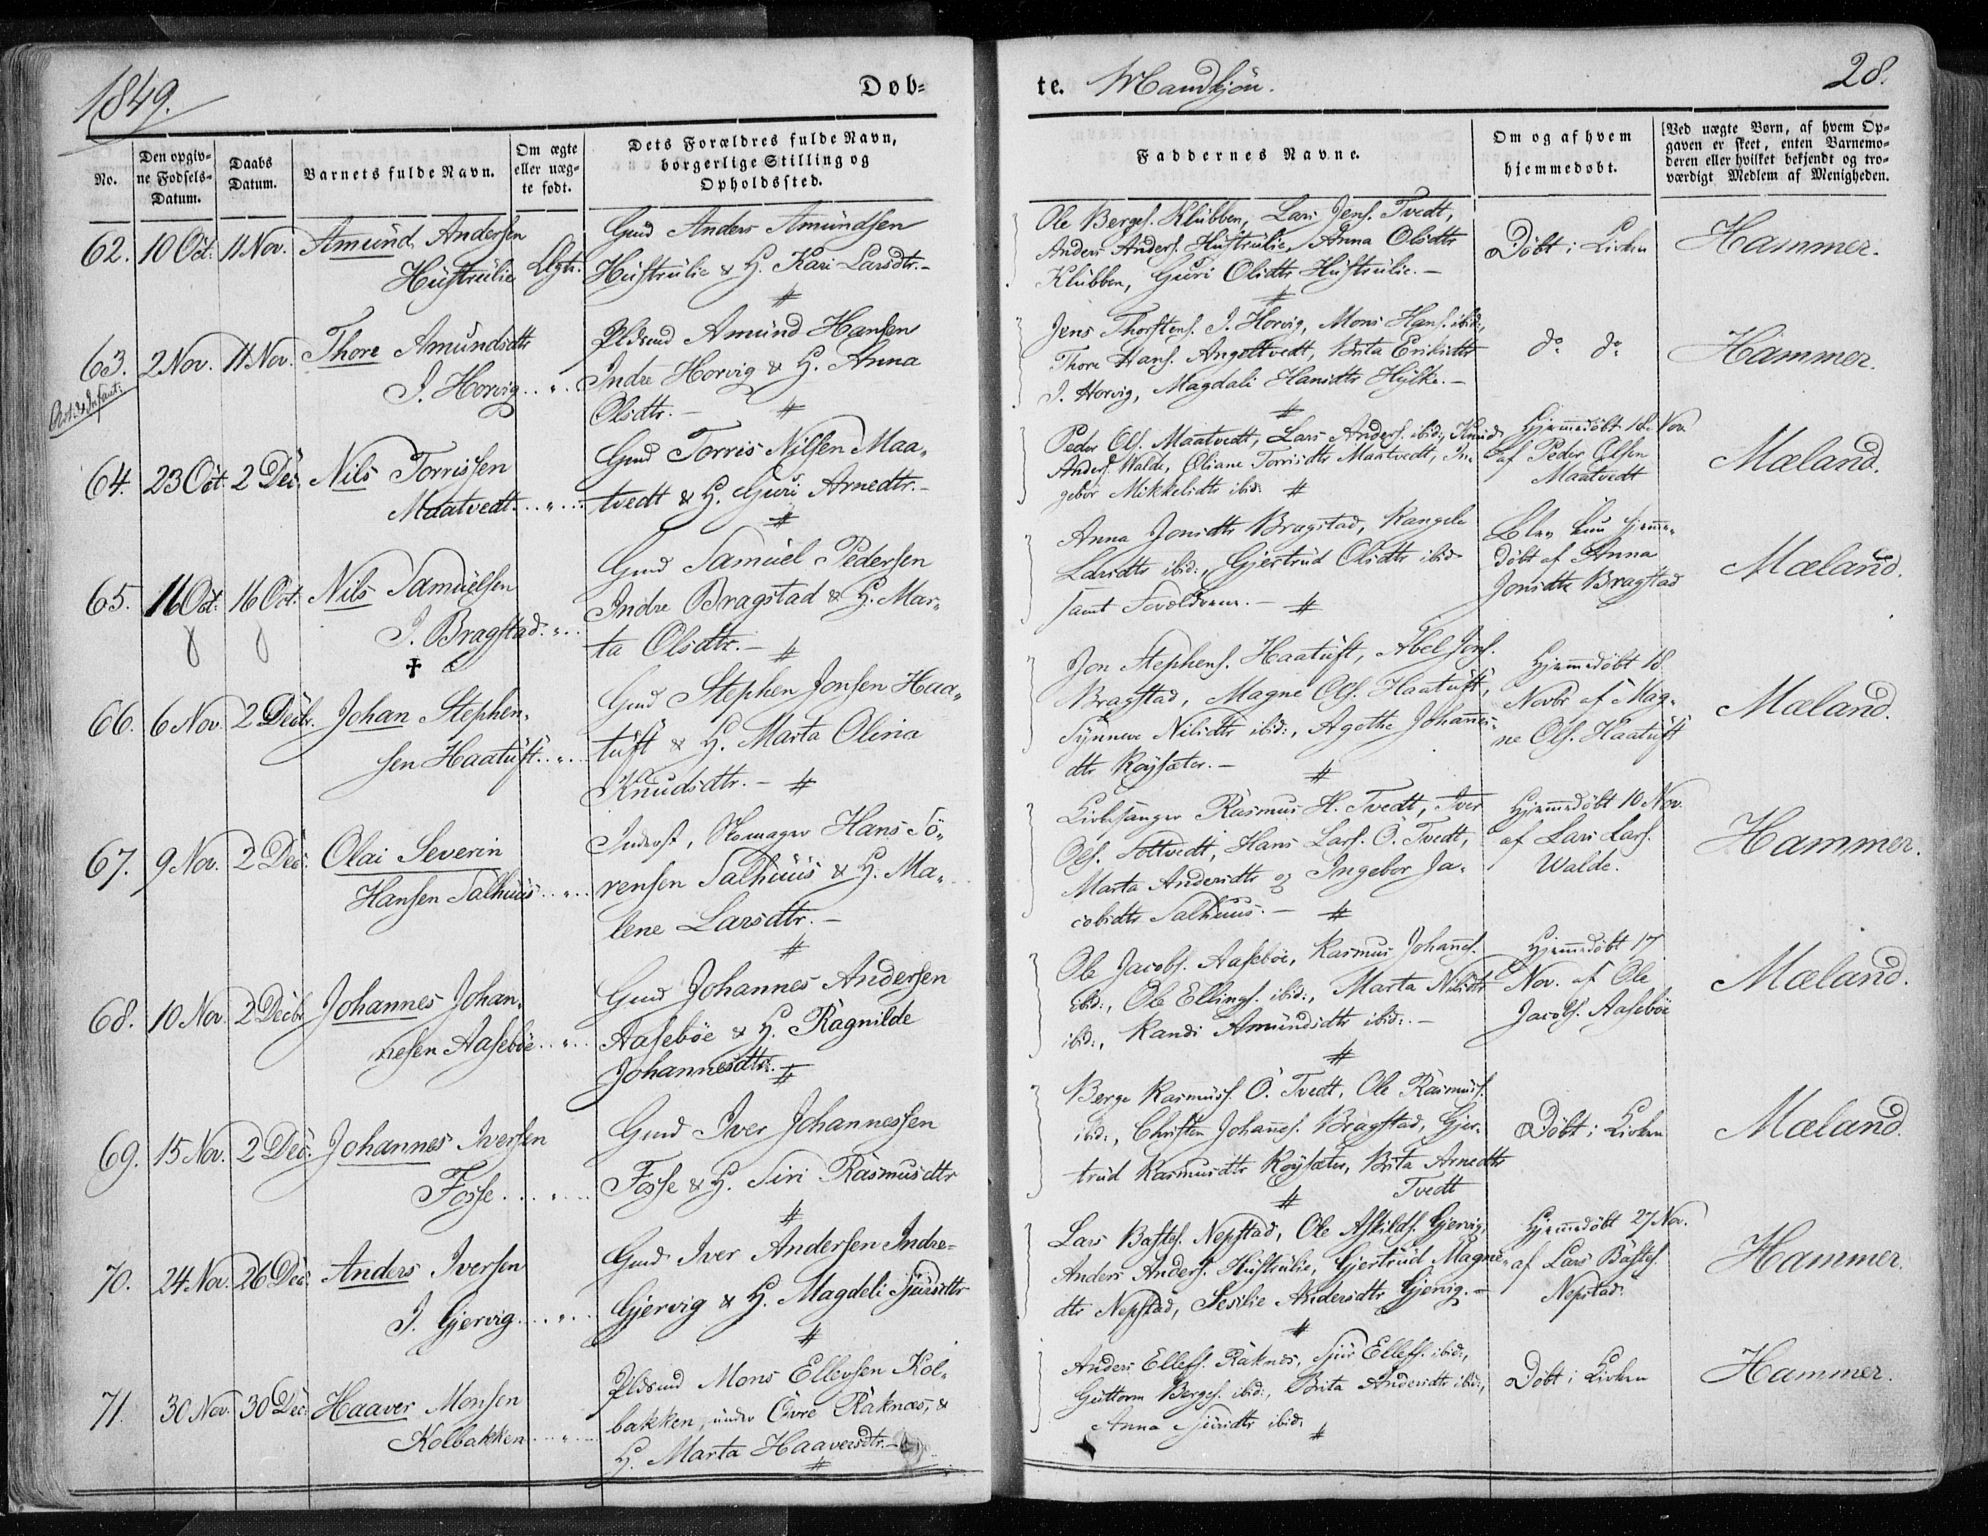 1849.
Dob-
te. Mandkjön.
28.
No.
Den opgiv-
ne Fodsels-
Datum.
Daabs
Datum.
Barnets fulde Navn.
Om ægte
eller uæg-
te født.
Dets Forældres fulde Navn,
borgerlige Stilling og
Opholdssted.
Faddernes Navne.
Om og af hvem
hjemmedobt.
[Ved uægte Børn, af hvem Op-
gaven er skeet, enten Barnemo-
deren eller hvilket bekjendt og tro-
værdigt Medlem af Menigheden.
62. 10 Oct. 11 Nov. Amund Andersen
Hüstrülie Ægte.
Gmd Anders Amundsen
Hüstrülie & H. Kari Larsdtr. —
Ole Berges. Klübben, Lars Jens. Tvedt,
Anders Anders. Hüstrülie, Anna Olsdtr
Klübben, Guri Olsdtr Hüstrülie. —
Döbt i Kirken
Hammer.
63. 2 Nov. 11 Nov. Thore Amundsdtr
I. Horvig
Amund Hansen
Indre Horvig & H. Anna
Olsdtr. —
Jens Thorstens. I. Horvig, Mons Hans. ibid:,
Thore Hans. Angeltvedt, Brita Eriksdtr
I. Horvig, Magdali Hansdtr Hylke. —
do do
Hammer.
64. 23 Oct 2 Dec. Nils Torrissen
Maatvedt
Gmd Torris Nilsen Maa-
tvedt & H. Guri Arnedtr. —
Peder Ols. Maatvedt, Lars Anders. ibid:, Knud
Anders. Walde, Oliane Torrisdtr Maatvedt, In-
gebor Mikkelsdtr ibid:
Hjemmedöbt 18. Nov.
af Peder Olsen
Maatvedt
Mæland.
65. 11 Oct. 16 Oct. Nils Samuelsen
I. Bragstad
Gmd Samuel Pedersen
Indre Bragstad & H. Mar-
ta Olsdtr. —
Anna Jonsdtr Bragstad, Rangele
Larsdtr ibid:, Gjertrud Olsdtr ibid:
samt Forældrene. —
Blev kun hjemme-
döbt af Anna
Jonsdtr Bragstad
Mæland.
66. 6 Nov. 2 Decbr. Johan Stephen-
sen Haatuft
Gmd Stephen Jonsen Haa-
tuft & H. Marta Oliria
Knudsdtr. —
Jon Stephens. Haatuft, Abel Jons.
Bragstad, Magne Ols. Haatuft,
Synneve Nilsdtr ibid:, Agathe Johannes-
dtr Röysæter. —
Hjemmedöbt 18.
Novbr af Mag-
ne Ols. Haatuft
Mæland.
67. 9 Nov. 2 Dec. Olai Severin
Hansen Salhuus
Inderst, Skomager Hans Sö-
rensen Salhuus & H. Ma-
lene Larsdtr. —
Kirkesanger Rasmus H. Tvedt, Iver
Ols. Toltvedt, Hans Lars. Ö. Tvedt,
Marta Andersdtr og Ingebor Ja-
cobsdtr Salhuus. —
Hjemmedöbt 10 Nov.
af Lars Lars.
Walde.
Hammer.
68. 10 Nov. 2 Decbr Johannes Johan-
nesen Aaseböe
Gmd Johannes Andersen
Aaseböe & H. Ragnilde
Johannesdtr.
Ole Jacobs. Aaseböe, Rasmus Johannes.
ibid:, Ole Ellings. ibid:, Marta Nilsdtr
ibid:, Randi Amundsdtr ibid:. —
Hjemmedöbt 17
Nov. af Ole
Jacobs. Aaseböe
Mæland.
69. 15 Nov. 2 Dec. Johannes Iversen
Fosse
Gmd Iver Johannessen
Fosse & H. Siri Rasmusdtr
Berge Rasmuss. Ö. Tvedt, Ole Rasmuss.
ibid:, Christen Johannes. Bragstad, Gjer-
trud Rasmusdtr Röysæter, Brita Arnedtr
Tvedt
Döbt i Kirken
Mæland.
70. 24 Nov. 26 Dec. Anders Iversen
I. Gjervig
Gmd Iver Andersen Indre-
Gjervig & H. Magdeli Sjursdtr
Lars Bastes. Nepstad, Ole Askilds. Gjervig,
Anders Anders. Hüstrülie, Gjertrud Magne-
dtr Nepstad, Sesilie Andersdtr Gjervig. —
Hjemmedöbt 27 Nov.
af Lars Bastes.
Nepstad.
Hammer.
71. 30 Nov. 30 Dec. Haaver Monsen
Kolbakken
Mons Ellevsen Kol-
bakken, under Övre Raknæs, &
H. Marta Haaversdtr. —
Anders Ellefs. Raknes, Sjur Ellefs. ibid:,
Guttorm Berges. ibid:, Brita Andersdtr ibid:,
Anna Sjursdtr ibid:
Döbt i Kirken
Hammer.